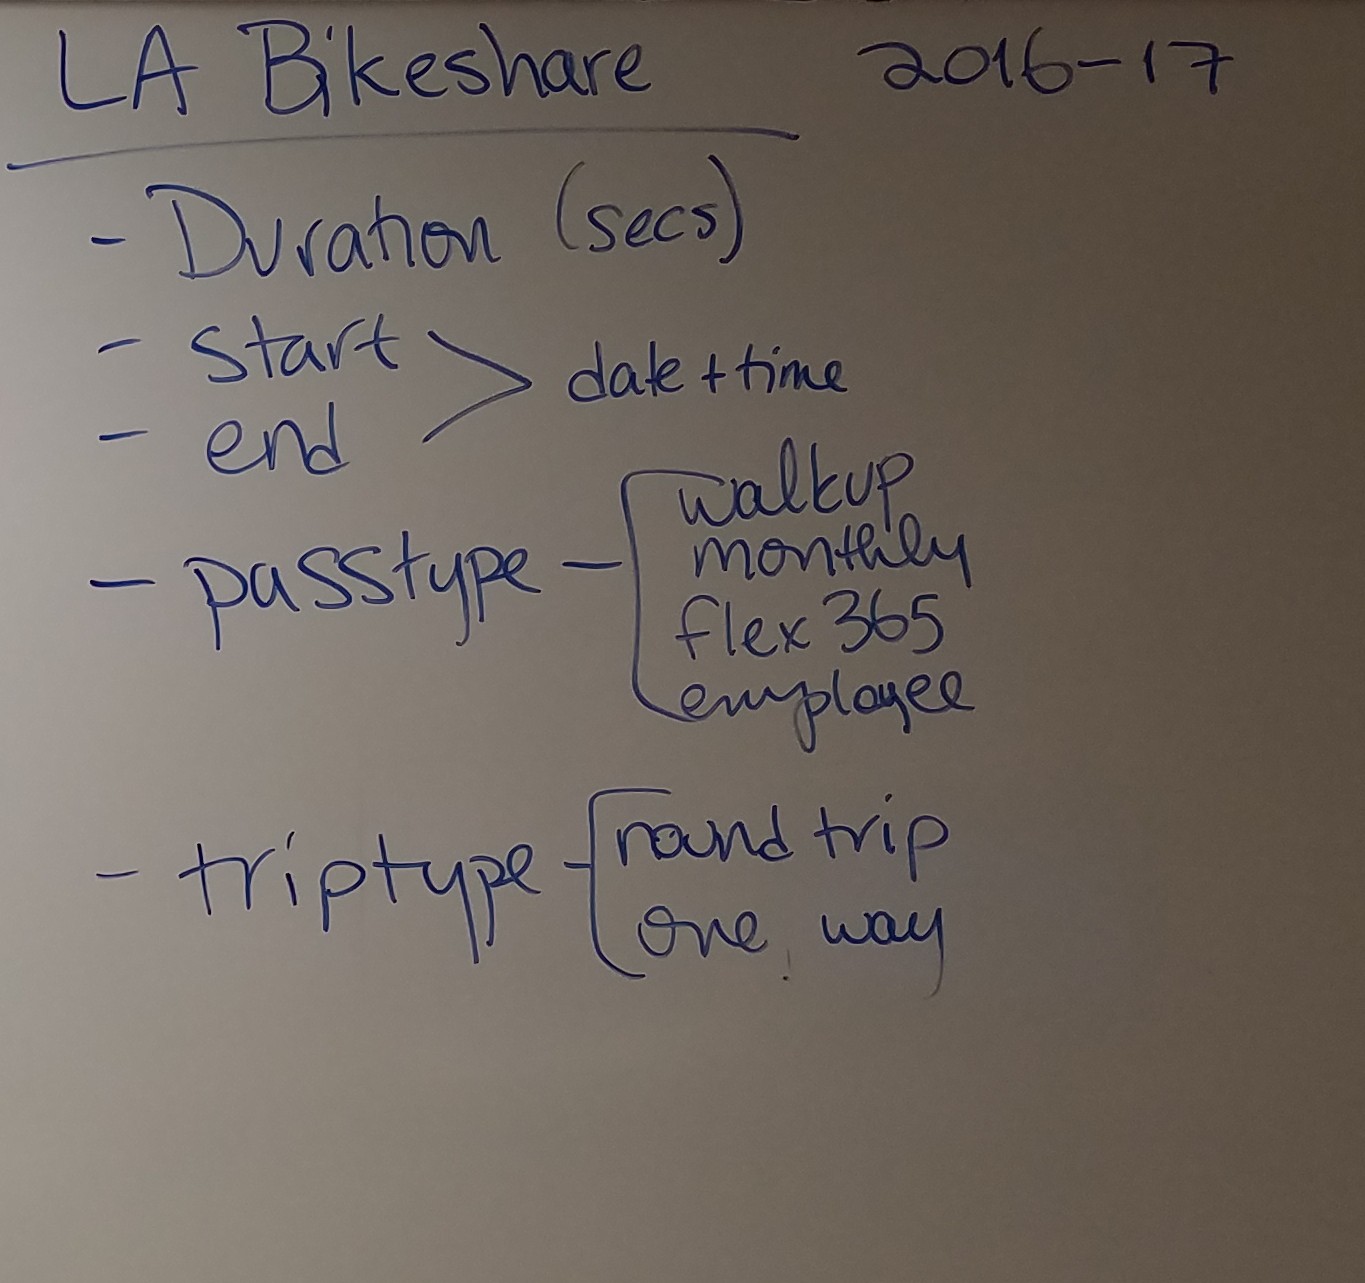 LA Bikeshare 2016-17
- Duration (secs)
- start
- end
> date + time
- passtype -
walkup
monthly
flex 365
employee
- triptype -
round trip
one way